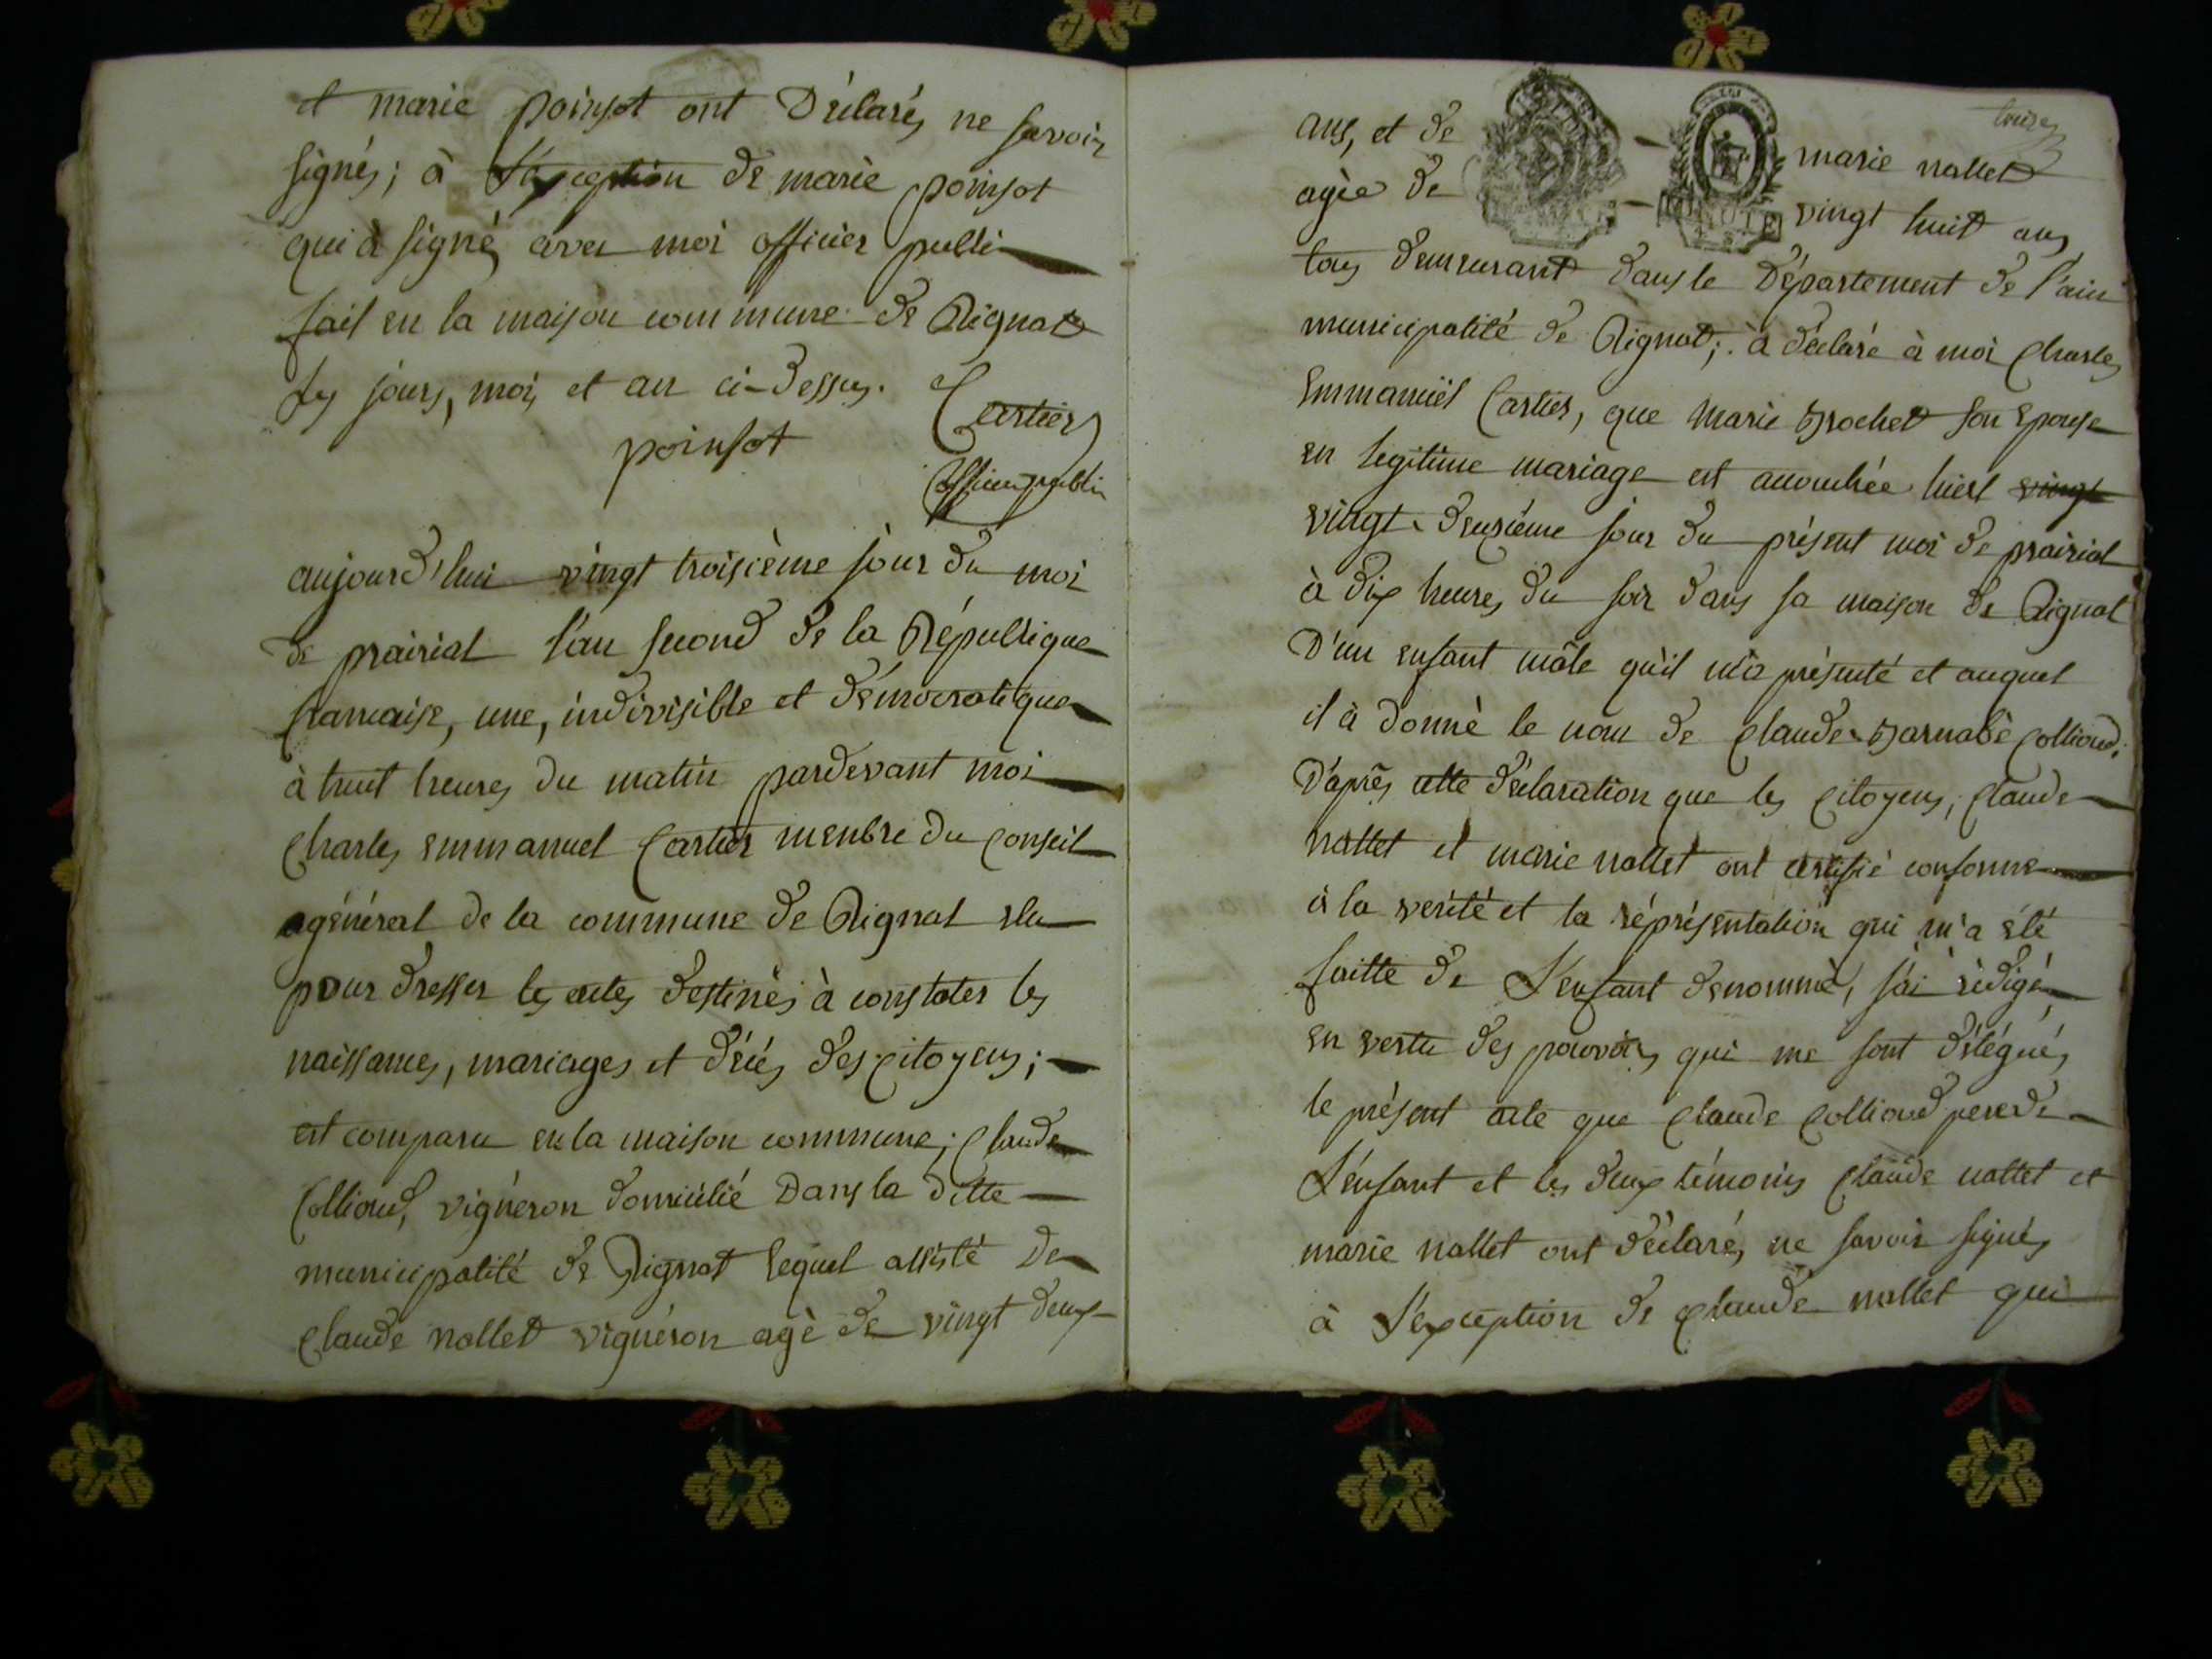 et marie poinsot ont Déclarés ne savoir
signés; à L'exception de marie poinsot
qui à signé avec moi officier public
fait en la maison commune de Rignat
les jours, mois et an ci-dessus. Cartier
poinsot
officier public
aujourd'hui vingt troisième jour du moi
de prairial l'an second de la République
francaise, une, indivisible et démocratique
à huit heures du matin pardevant moi
Charles emmanuel Cartier membre du conseil
général de la commune de Rignat elu
pour dresser les actes destinés à constater les
naissances, mariages et décés des citoyens;
est comparu en la maison commune; claude
Collioud, vignéron domicilié Dans la ditte
municipalité de Rignat lequel assisté De
claude nallet vignéron agé de vingt deux
trèize
ans, et de marie nallet
agée de vingt huit ans
tous demeurant dans le Département de l'ain
municipalité de Rignat; à déclaré à moi Charles
Emmanuel Cartier, que Marie Brochet son Epouse
en legitime mariage est accouchée hiert vingt
vingt-deuxième jour du présent moi de prairial
à dix heures du soir dans sa maison de Rignat
D'un enfant mâle qu'il m'a présenté et auquel
il à donné le nom de claude-Barnabé Collioud;
D'après cette déclaration que les citoyens; claude
nallet et marie nallet ont certifié conforme
à la verité et la réprésentation qui m'a été
faitte de L'enfant denommé, j'ai rédigé,
en vertu des pouvoirs qui me sont délégués,
le présent acte que claude Collioud pere de
L'enfant et les deux témoins claude nallet et
marie nallet ont déclarés ne savoir signés
à L'exception de claude nallet qui